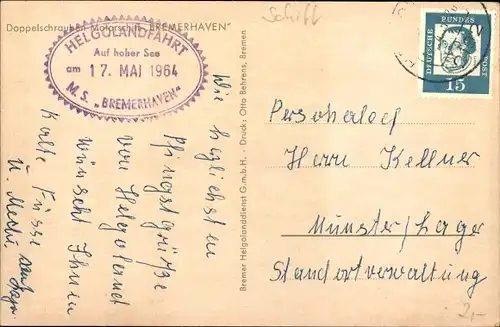 Doppelschrauben-Motorschiff „BREMERHAVEN"
Schiff
HELGOLANDFAHRT
Auf hoher See
am 17. MAI 1964
M. S. „BREMERHAVEN"
DEUTSCHE BUNDESPOST
15
Die herzlichsten
Pfingstgrüße
von Helgoland
wünscht Ihnen
Kalte Füsse
u.
Bremer Helgolanddienst G.m.b.H. · Druck: Otto Behrens, Bremen
Personalrat
Herrn Kellner
Munster/Lager
Standortverwaltung
2,-